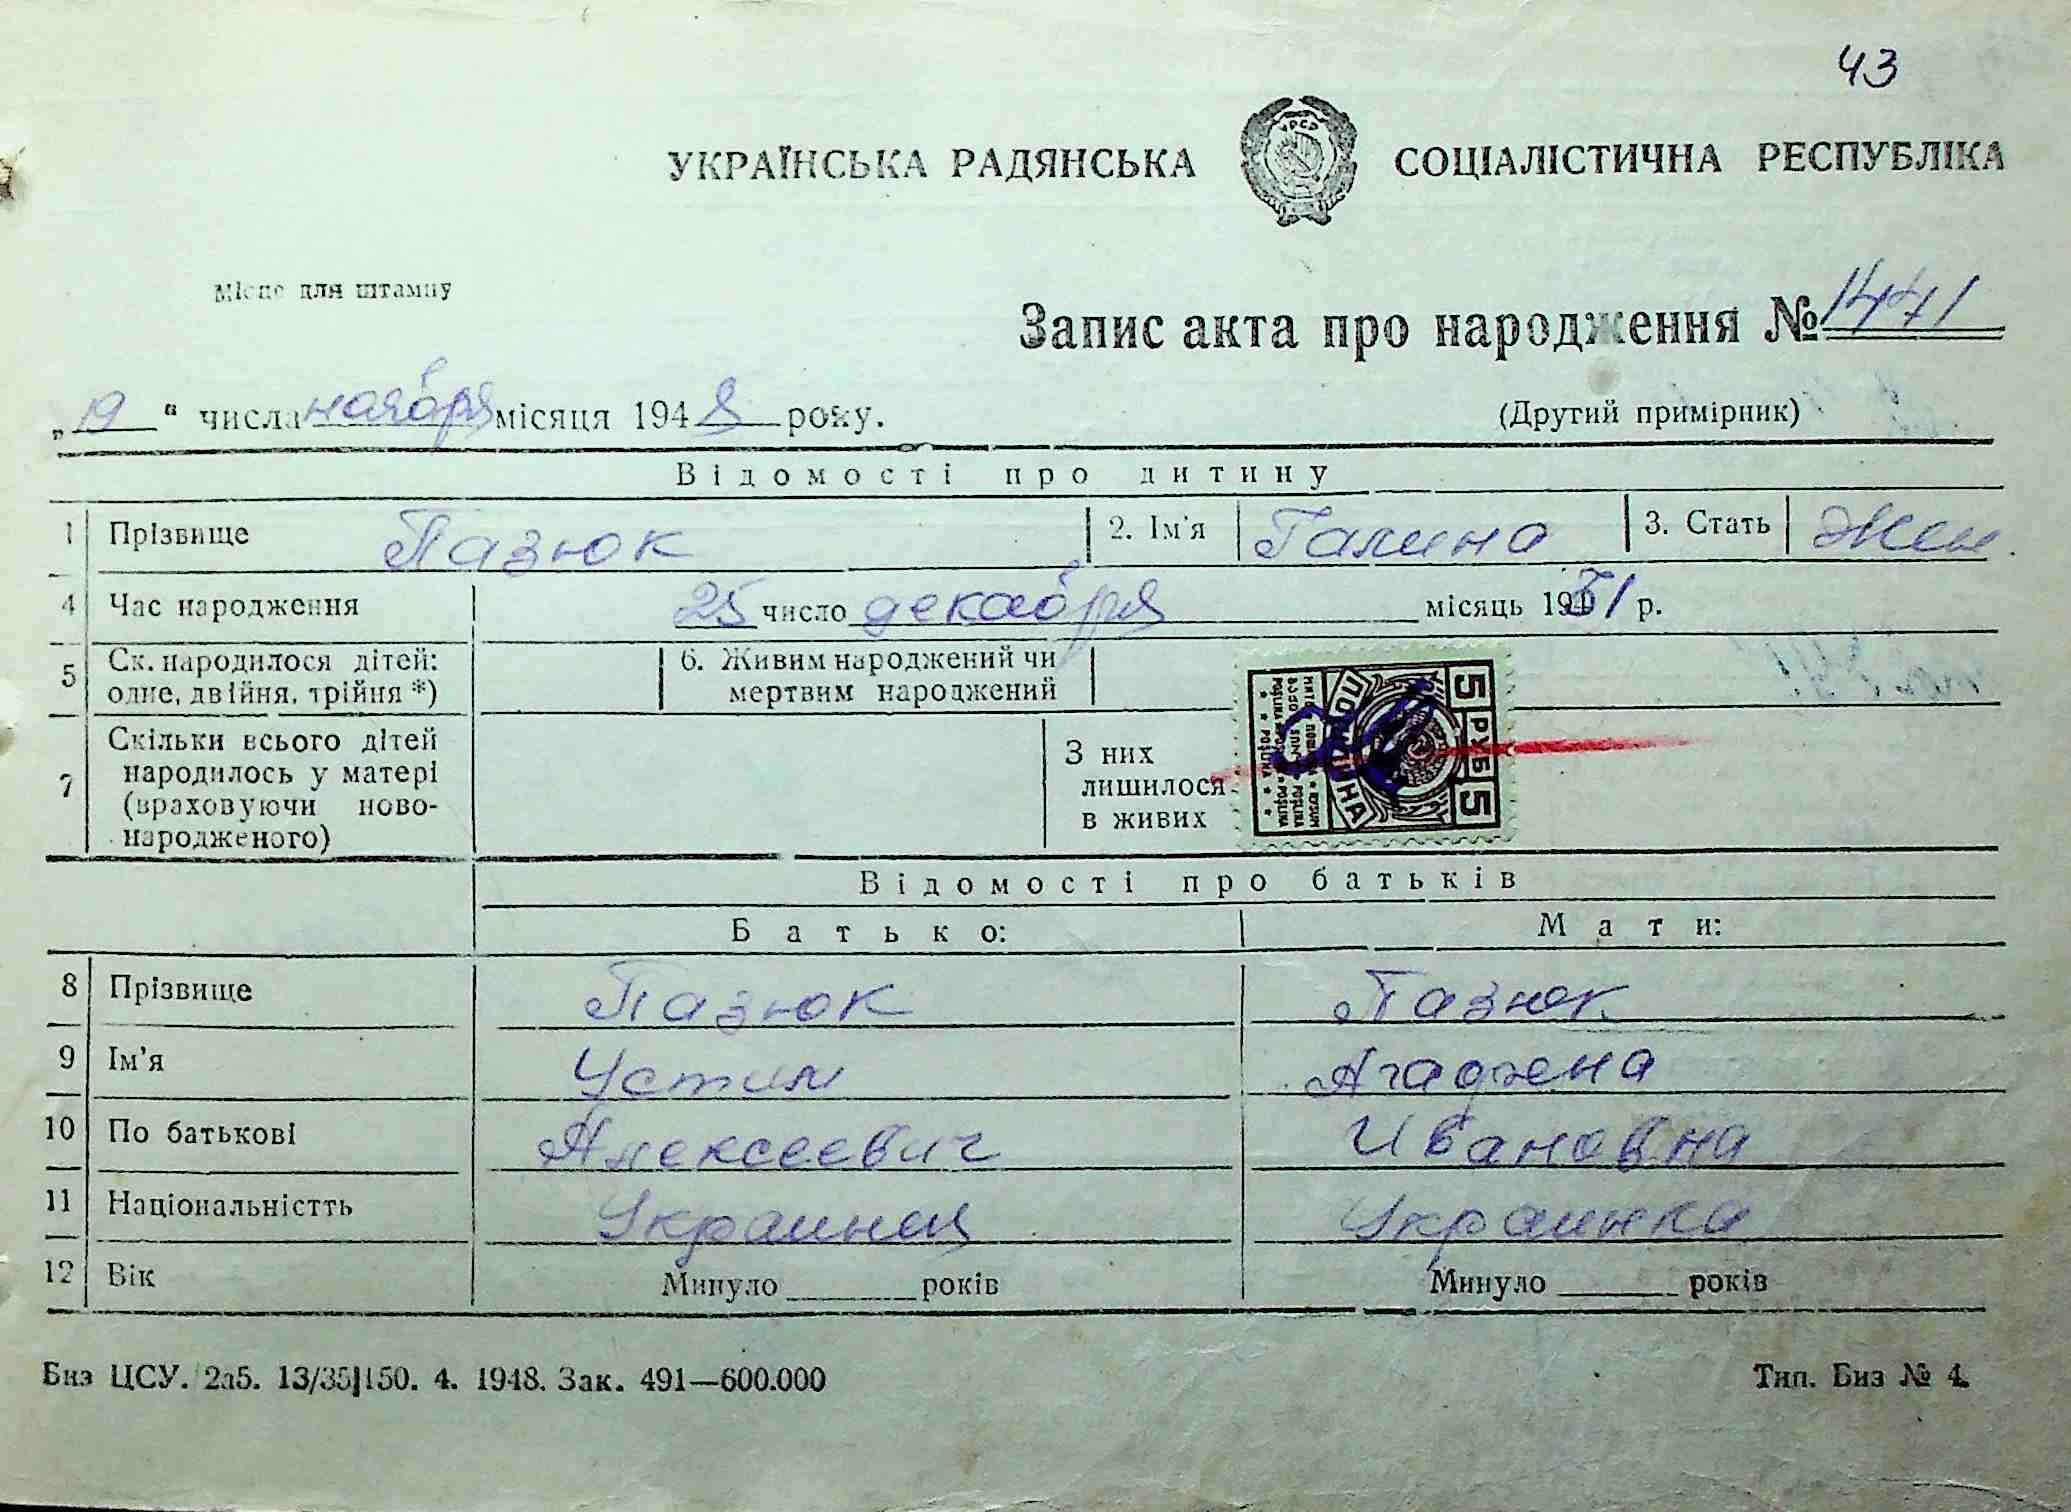 43
УКРАЇНСЬКА РАДЯНСЬКА СОЦІАЛІСТИЧНА РЕСПУБЛІКА
Місце для штампу
Запис акта про народження № 1471
„19“ числа ноября місяця 1948 року.
(Другий примірник)
Відомості про дитину
1 Прізвище Пазюк 2. Ім'я Галина 3. Стать Жен.
4 Час народження 25 число декабря місяць 1931 р.
5 Ск. народилося дітей: одне, двійня, трійня *) 6. Живим народжений чи мертвим народжений
7 Скільки всього дітей народилось у матері (враховуючи ново- народженого) З них лишилося в живих
5 РУБ 5
ПОШЛИНА
Відомості про батьків
Батько: Мати:
8 Прізвище Пазюк Пазюк
9 Ім'я Устим Агафена
10 По батькові Алексеевич Ивановна
11 Національністть Украинец Украинка
12 Вік Минуло ______ років Минуло ______ років
Биз ЦСУ. 2а5. 13/35]150. 4. 1948. Зак. 491—600.000 Тип. Биз № 4.